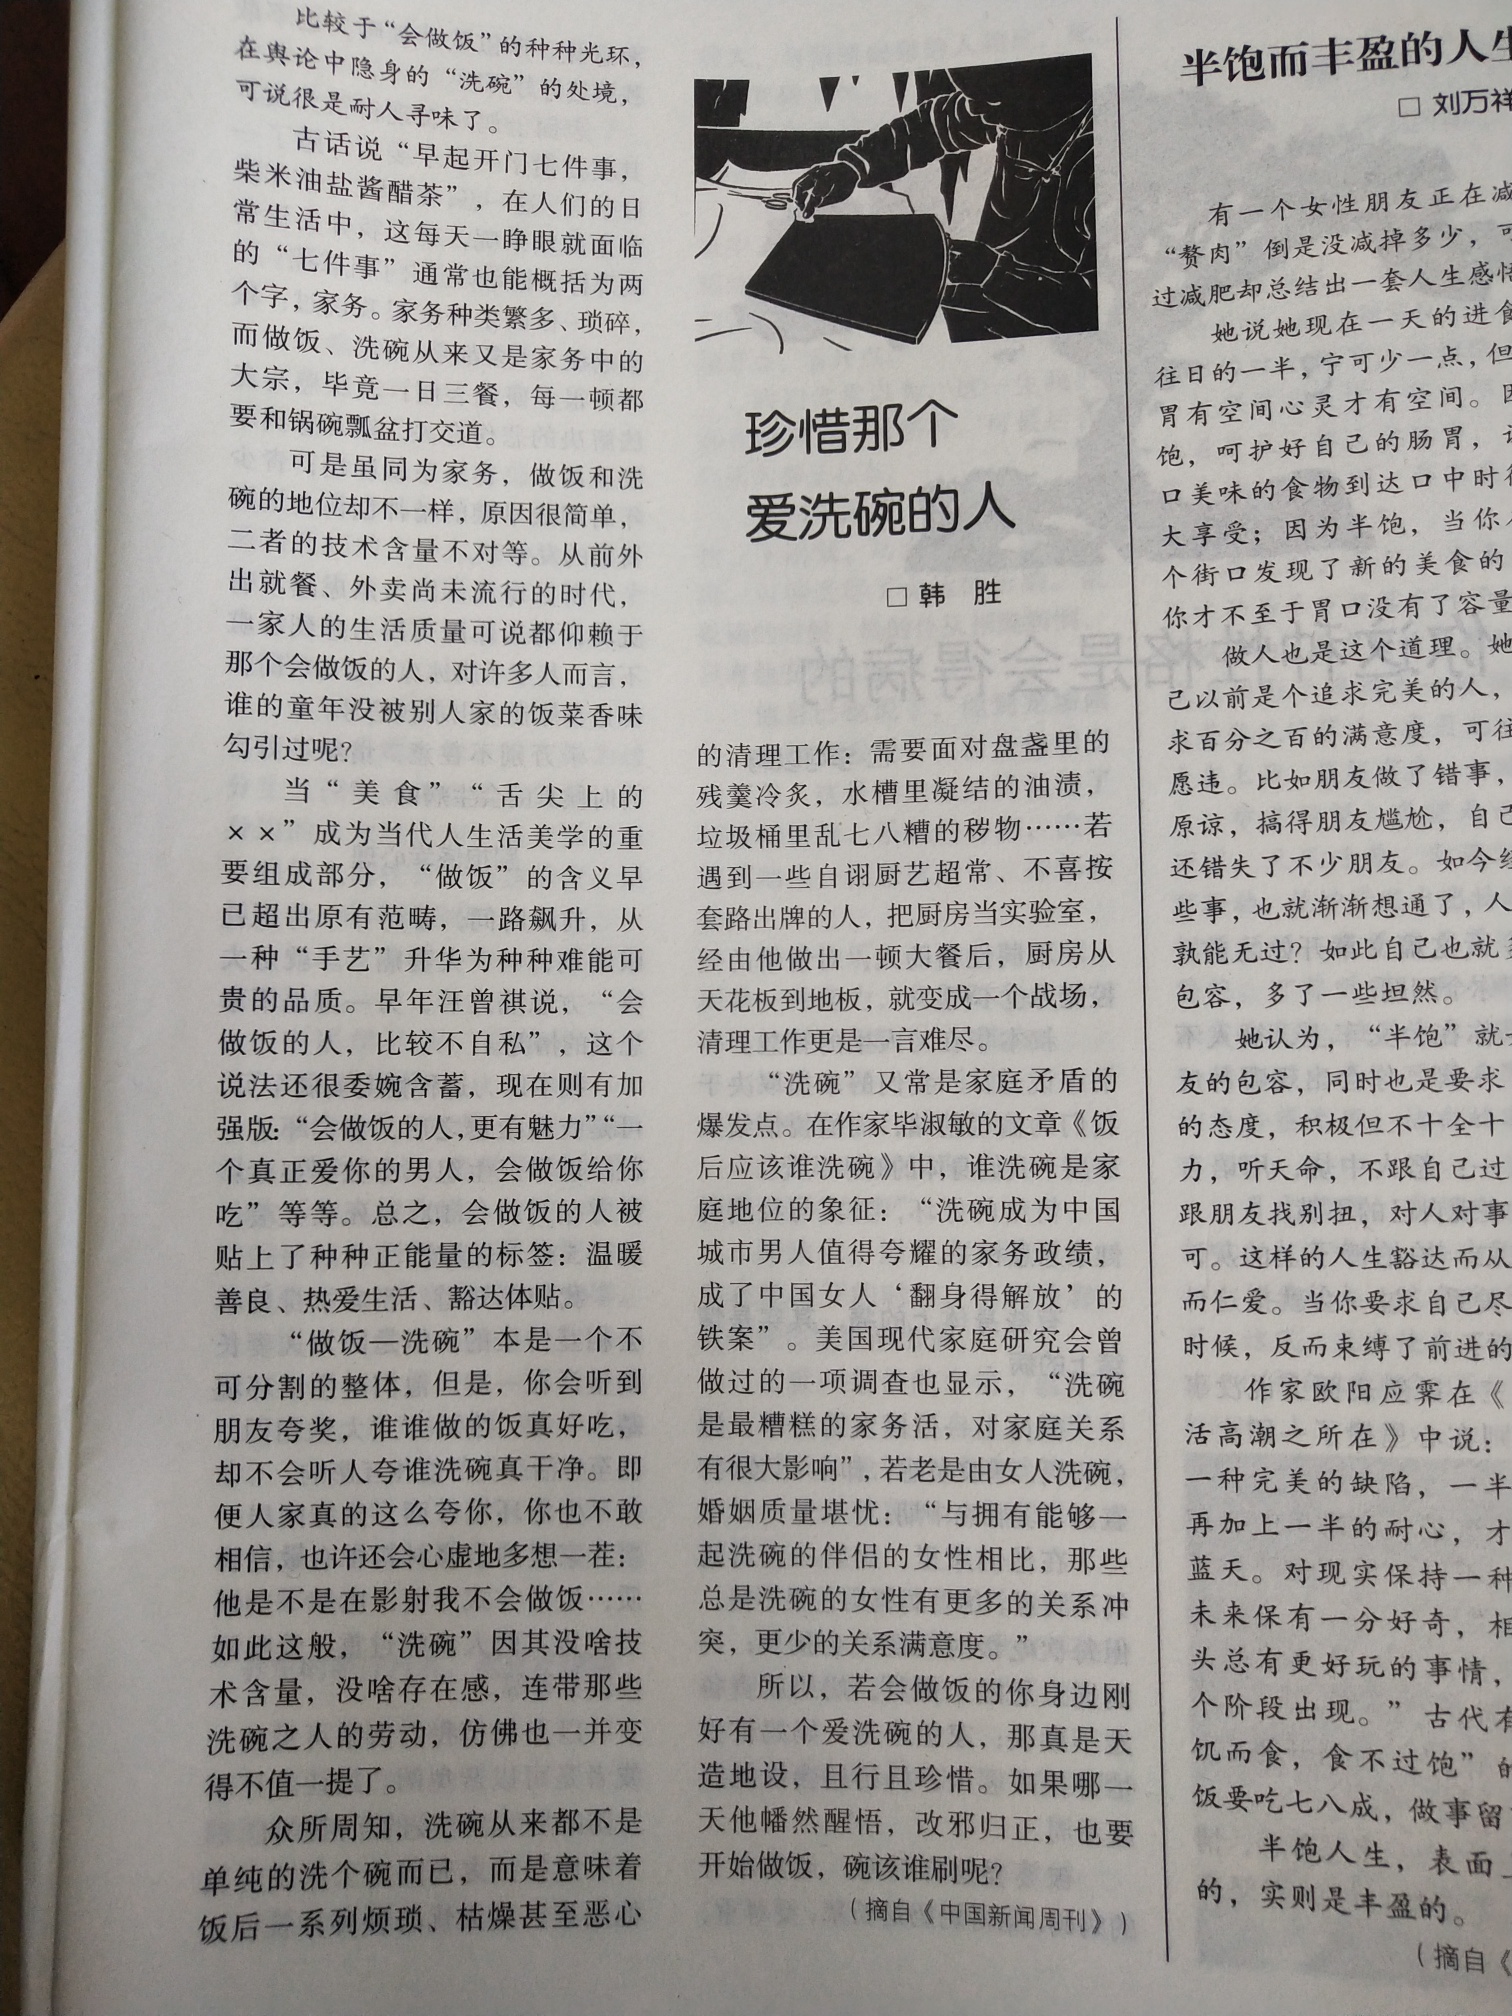 比较于“会做饭”的种种光环，
在舆论中隐身的“洗碗”的处境，
可说很是耐人寻味了。
古话说“早起开门七件事，
柴米油盐酱醋茶”，在人们的日
常生活中，这每天一睁眼就面临
的“七件事”通常也能概括为两
个字，家务。家务种类繁多、琐碎，
而做饭、洗碗从来又是家务中的
大宗，毕竟一日三餐，每一顿都
要和锅碗瓢盆打交道。
可是虽同为家务，做饭和洗
碗的地位却不一样，原因很简单，
二者的技术含量不对等。从前外
出就餐、外卖尚未流行的时代，
一家人的生活质量可说都仰赖于
那个会做饭的人，对许多人而言，
谁的童年没被别人家的饭菜香味
勾引过呢？
当“美食”“舌尖上的
××”成为当代人生活美学的重
要组成部分，“做饭”的含义早
已超出原有范畴，一路飙升，从
一种“手艺”升华为种种难能可
贵的品质。早年汪曾祺说，“会
做饭的人，比较不自私”，这个
说法还很委婉含蓄，现在则有加
强版：“会做饭的人，更有魅力”“一
个真正爱你的男人，会做饭给你
吃”等等。总之，会做饭的人被
贴上了种种正能量的标签：温暖
善良、热爱生活、豁达体贴。
“做饭—洗碗”本是一个不
可分割的整体，但是，你会听到
朋友夸奖，谁谁做的饭真好吃，
却不会听人夸谁洗碗真干净。即
便人家真的这么夸你，你也不敢
相信，也许还会心虚地多想一茬：
他是不是在影射我不会做饭……
如此这般，“洗碗”因其没啥技
术含量，没啥存在感，连带那些
洗碗之人的劳动，仿佛也一并变
得不值一提了。
众所周知，洗碗从来都不是
单纯的洗个碗而已，而是意味着
饭后一系列烦琐、枯燥甚至恶心
珍惜那个
爱洗碗的人
□ 韩 胜
的清理工作：需要面对盘盏里的
残羹冷炙，水槽里凝结的油渍，
垃圾桶里乱七八糟的秽物……若
遇到一些自诩厨艺超常、不喜按
套路出牌的人，把厨房当实验室，
经由他做出一顿大餐后，厨房从
天花板到地板，就变成一个战场，
清理工作更是一言难尽。
“洗碗”又常是家庭矛盾的
爆发点。在作家毕淑敏的文章《饭
后应该谁洗碗》中，谁洗碗是家
庭地位的象征：“洗碗成为中国
城市男人值得夸耀的家务政绩，
成了中国女人‘翻身得解放’的
铁案”。美国现代家庭研究会曾
做过的一项调查也显示，“洗碗
是最糟糕的家务活，对家庭关系
有很大影响”，若老是由女人洗碗，
婚姻质量堪忧：“与拥有能够一
起洗碗的伴侣的女性相比，那些
总是洗碗的女性有更多的关系冲
突，更少的关系满意度。”
所以，若会做饭的你身边刚
好有一个爱洗碗的人，那真是天
造地设，且行且珍惜。如果哪一
天他幡然醒悟，改邪归正，也要
开始做饭，碗该谁刷呢？
（摘自《中国新闻周刊》）
半饱而丰盈的人生
□ 刘万祥
有一个女性朋友正在减
“赘肉”倒是没减掉多少，可
过减肥却总结出一套人生感悟
她说她现在一天的进食
往日的一半，宁可少一点，但
胃有空间心灵才有空间。因
饱，呵护好自己的肠胃，让
口美味的食物到达口中时很
大享受；因为半饱，当你
个街口发现了新的美食的
你才不至于胃口没有了容量
做人也是这个道理。她
己以前是个追求完美的人，
求百分之百的满意度，可往
愿违。比如朋友做了错事，
原谅，搞得朋友尴尬，自己
还错失了不少朋友。如今经
些事，也就渐渐想通了，人
孰能无过？如此自己也就多
包容，多了一些坦然。
她认为，“半饱”就
友的包容，同时也是要求
的态度，积极但不十全十
力，听天命，不跟自己过
跟朋友找别扭，对人对事
可。这样的人生豁达而从
而仁爱。当你要求自己尽
时候，反而束缚了前进的
作家欧阳应霁在《
活高潮之所在》中说：
一种完美的缺陷，一半
再加上一半的耐心，才
蓝天。对现实保持一种
未来保有一分好奇，相
头总有更好玩的事情，
个阶段出现。”古代有
饥而食，食不过饱”的
饭要吃七八成，做事留
半饱人生，表面上
的，实则是丰盈的。
（摘自《